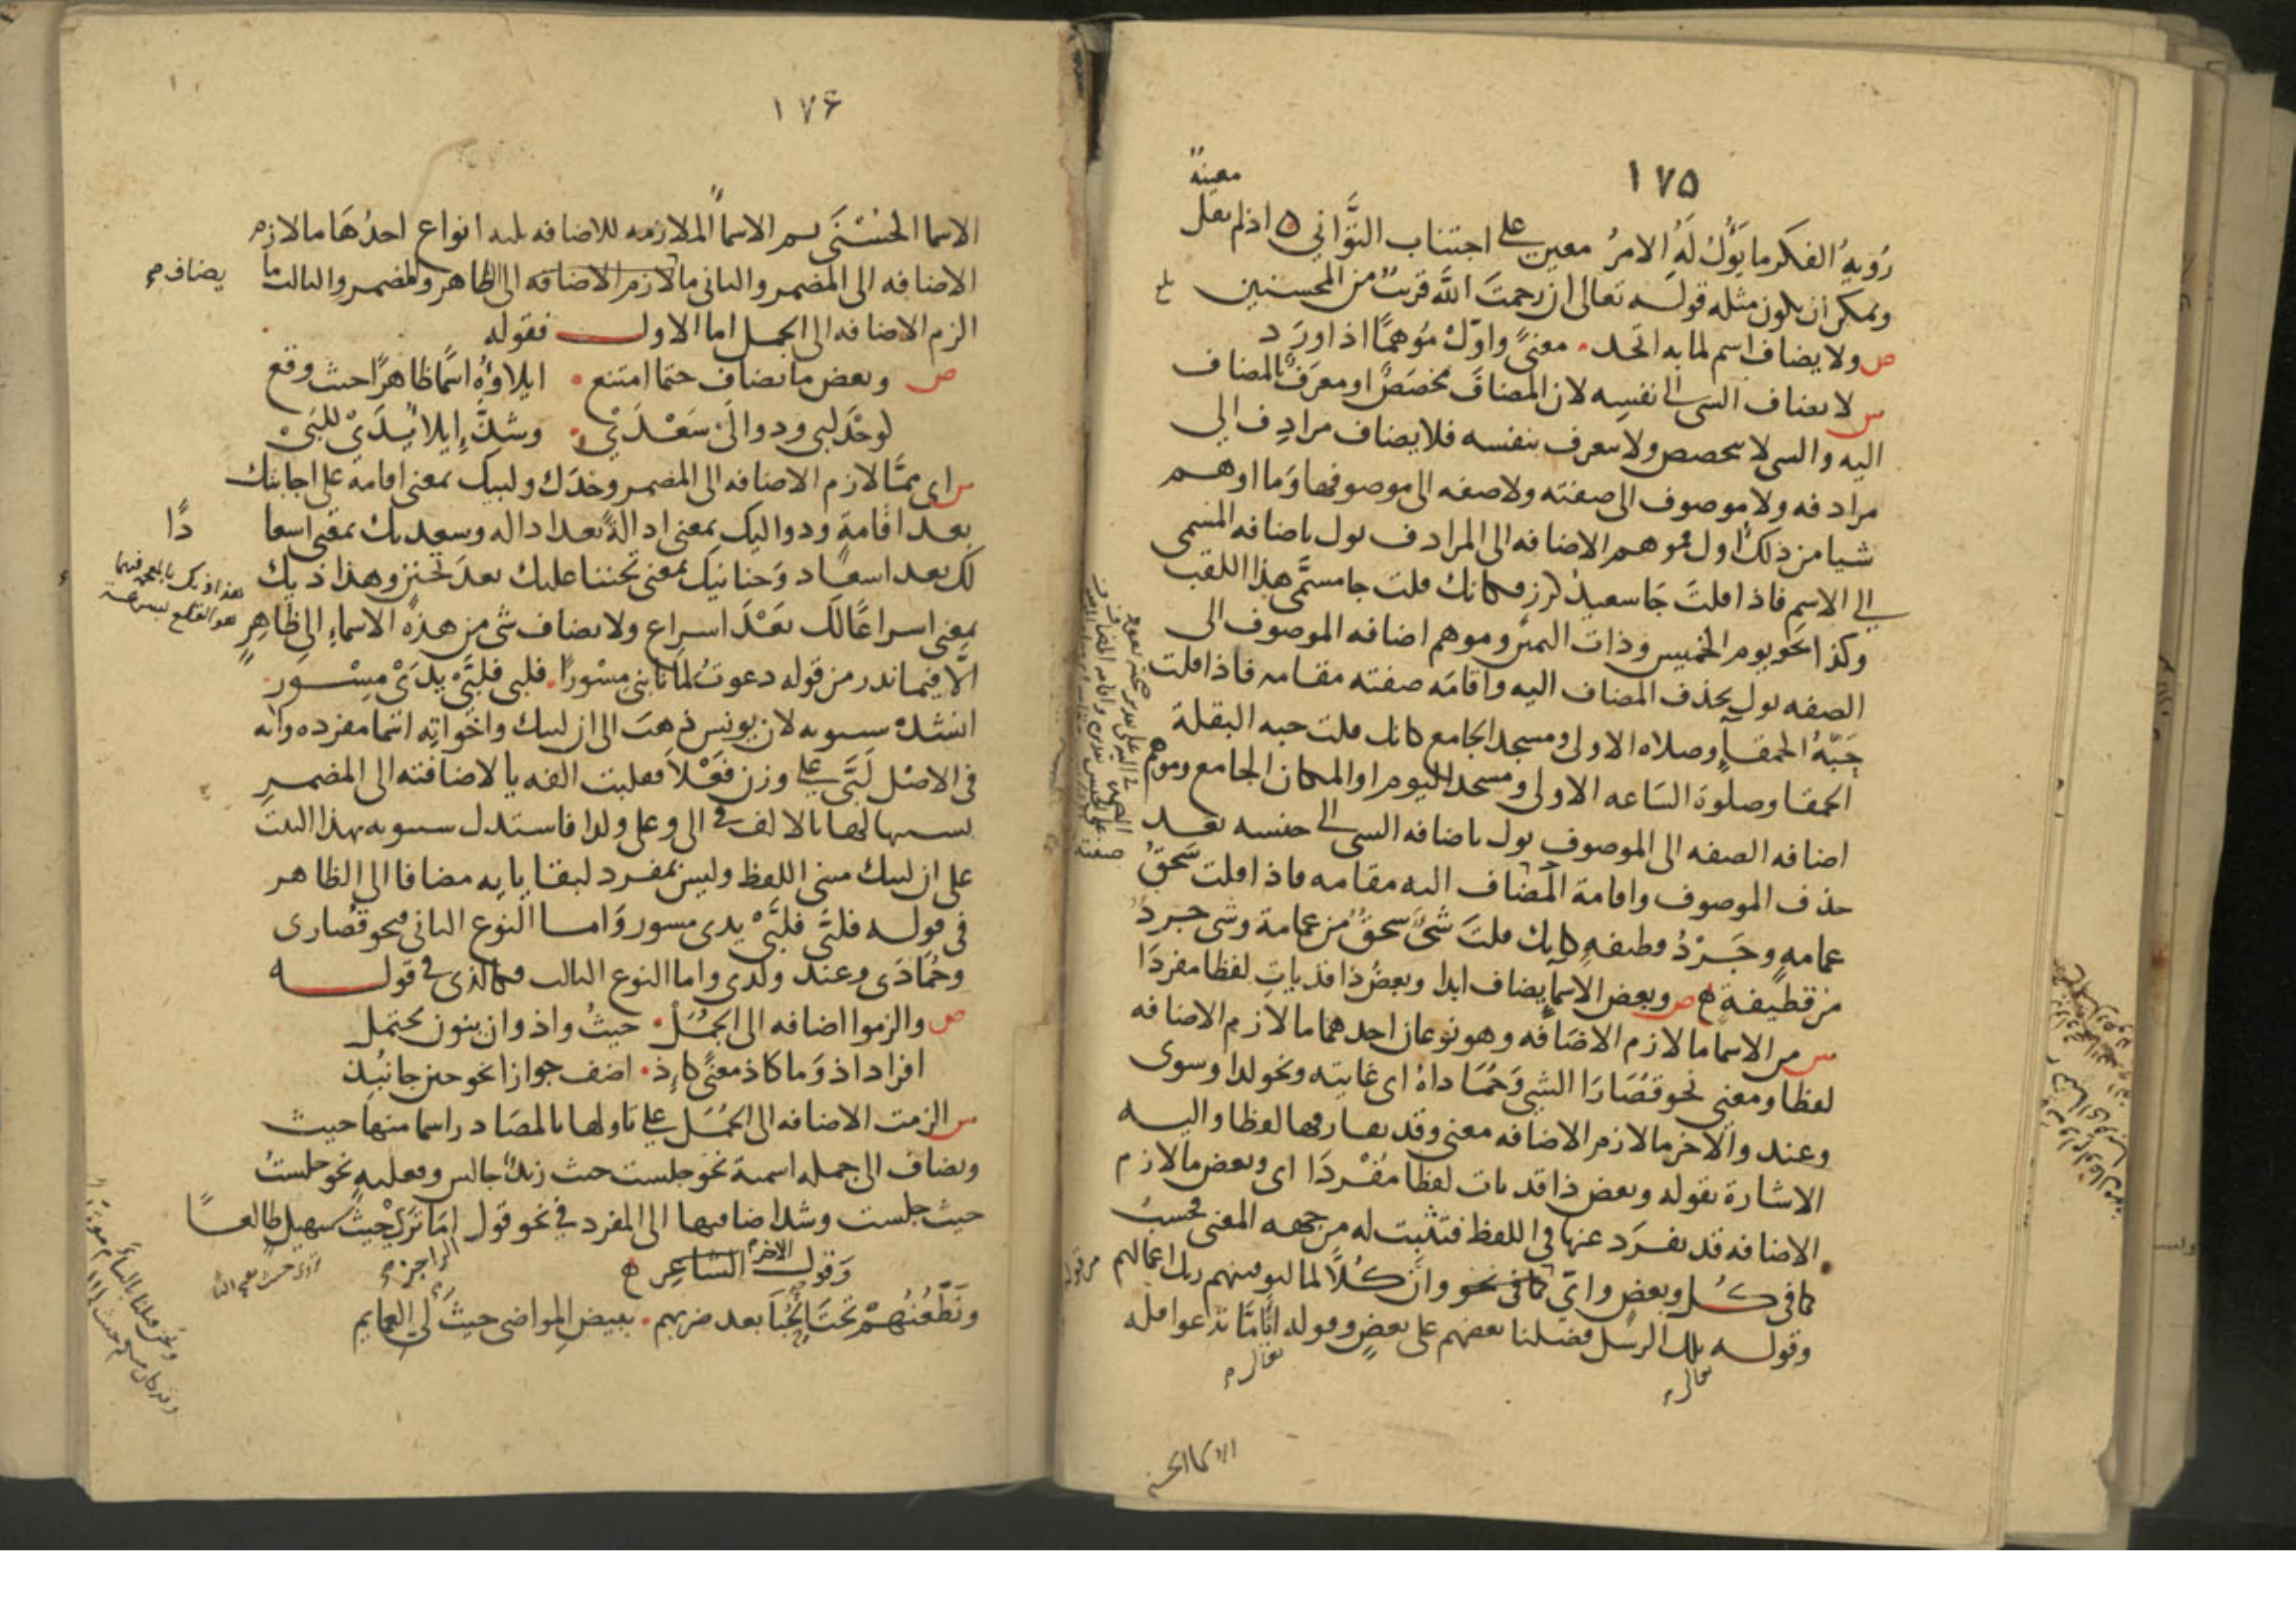 ١٧٥
معينة
رؤية الفكر ما يؤل له الامر معين على اجتناب التواني اذ لم يقل
ويمكن ان يكون مثله قوله تعالى ان رحمت الله قريب من المحسنين
ص ولا يضاف اسم لما به اتحد معنى واول موهما اذا ورد
س لا يضاف الشي الى نفسه لان المضاف مخصص او معرف بالمضاف
اليه والشي لا يتخصص ولا يتعرف بنفسه فلا يضاف مرادف الى
مرادفه ولا موصوف الى صفته ولا صفه الى موصوفها وما اوهم
شيا من ذلك اول فموهم الاضافه الى المرادف يول باضافه المسمى
الى الاسم فاذا قلت جا سعيد كرز فكانك قلت جا مسمى هذا اللقب
وكذا نحو يوم الخميس وذات اليمين وموهم اضافه الموصوف الى
الصفه يول بحذف المضاف اليه واقامه صفته مقامه فاذا قلت
حبة الحمقا وصلاه الاولى ومسجد الجامع فكانك قلت حبه البقلة
الحمقا وصلوة الساعه الاولى ومسجد اليوم او المكان الجامع وموهم
اضافه الصفه الى الموصوف يول باضافه الشي الى جنسه بعد
حذف الموصوف واقامة المضاف اليه مقامه فاذا قلت سحق
عمامه وجرد قطيفه فكانك قلت شي سحق من عمامة وشي جرد
من قطيفة ص وبعض الاسما يضاف ابدا وبعض ذا قد يات لفظا مفردا
س من الاسما ما لازم الاضافه وهو نوعان احدهما ما لازم الاضافه
لفظا ومعنى نحو قصارا الشي وحماداه اى غايته ونحو لدا وسوى
وعند والاخر ما لازم الاضافه معنى وقد يفارقها لفظا واليه
الاشارة بقوله وبعض ذا قد يات لفظا مفردا اى وبعض ما لازم
الاضافه قد يفرد عنها في اللفظ فتثبت له من جهه المعنى فحسب
كما في كل وبعض واي كما في نحو وان كلا لما ليوفينهم ربك اعمالهم
وقوله تلك الرسل فضلنا بعضهم على بعض وقوله ايا ما تدعوا فله
تعالى
تعالى
الاسما الحسنى
١٧٦
الاسما الحسنى ثم الاسما الملازمه للاضافه ثلثه انواع احدها ما لازم
الاضافه الى المضمر والثانى ما لازم الاضافه الى الظاهر والمضمر والثالث ما
يضاف
الزم الاضافه الى الجمل اما الاول فقوله
ص وبعض ما يضاف حتما امتنع ايلاوه اسما ظاهرا حيث وقع
لوحد لبى ودوالى سعدى وشذ ايلا يدى للبى
س اى مما لازم الاضافه الى المضمر وحدك ولبيك بمعنى اقامة على اجابتك
بعد اقامة ودواليك بمعنى ادالة بعد اداله وسعديك بمعنى اسعا
دا
لك بعد اسعاد وحنانيك بمعنى تحننا عليك بعد تحنن وهذاذيك
بمعنى اسراعا لك بعد اسراع ولا يضاف شي من هذه الاسماء الى ظاهر
الا فيما ندر من قوله دعوت لما نابني مسورا فلبى فلبي يدي مسور
انشده سيبويه لان يونس ذهب الى ان لبيك واخواته اسما مفرده وانه
في الاصل لبى على وزن فعلا فقلبت الفه يا لاضافته الى المضمر
تشبيها لها بالالف في الى وعلى ولدا فاستدل سيبويه بهذا البيت
على ان لبيك مثنى اللفظ وليس بمفرد لبقا يايه مضافا الى الظاهر
في قوله فلبى فلبي يدى مسور واما النوع الثانى فنحو قصارى
وحمادى وعند ولدى واما النوع الثالث فكالذي في قوله
ص والزموا اضافه الى الجمل حيث واذ وان ينون يحتمل
افراد اذ وما كاذ معنى كاذ اضف جوازا نحو حين جا نبذ
س الزمت الاضافه الى الجمل على تاولها بالمصادر اسما منها حيث
وتضاف الى جمله اسمية نحو جلست حيث زيد جالس وفعليه نحو جلست
حيث جلست وشذ اضافتها الى المفرد في نحو قول اما ترى حيث سهيل طالعا
الراجز
وقول الاخر الشاعر
ونطعنهم تحت الحبا بعد ضربهم ببيض المواضى حيث لي العمايم